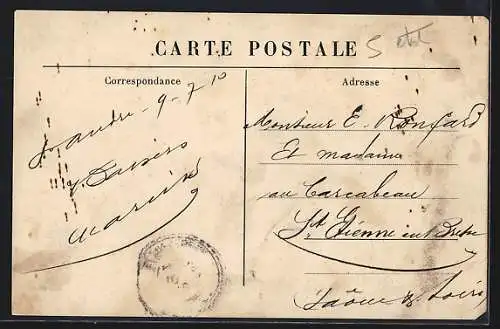 CARTE POSTALE
Correspondance
Adresse
9-7 10
Baisers
Monsieur E. Ronfard
Et madame
au Carcabeau
St Etienne en Bresse
Saône & Loire